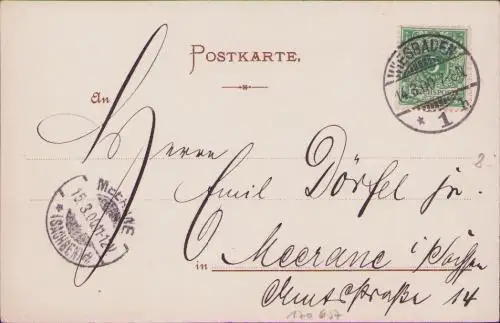 POSTKARTE.
WIESBADEN
* 1 n
An
Herrn
Emil Dörfel jr.
MEERANE
15.3.00.11-12V
* (SACHSEN)
in Meerane i/Sachsen
Amtsstraße 14